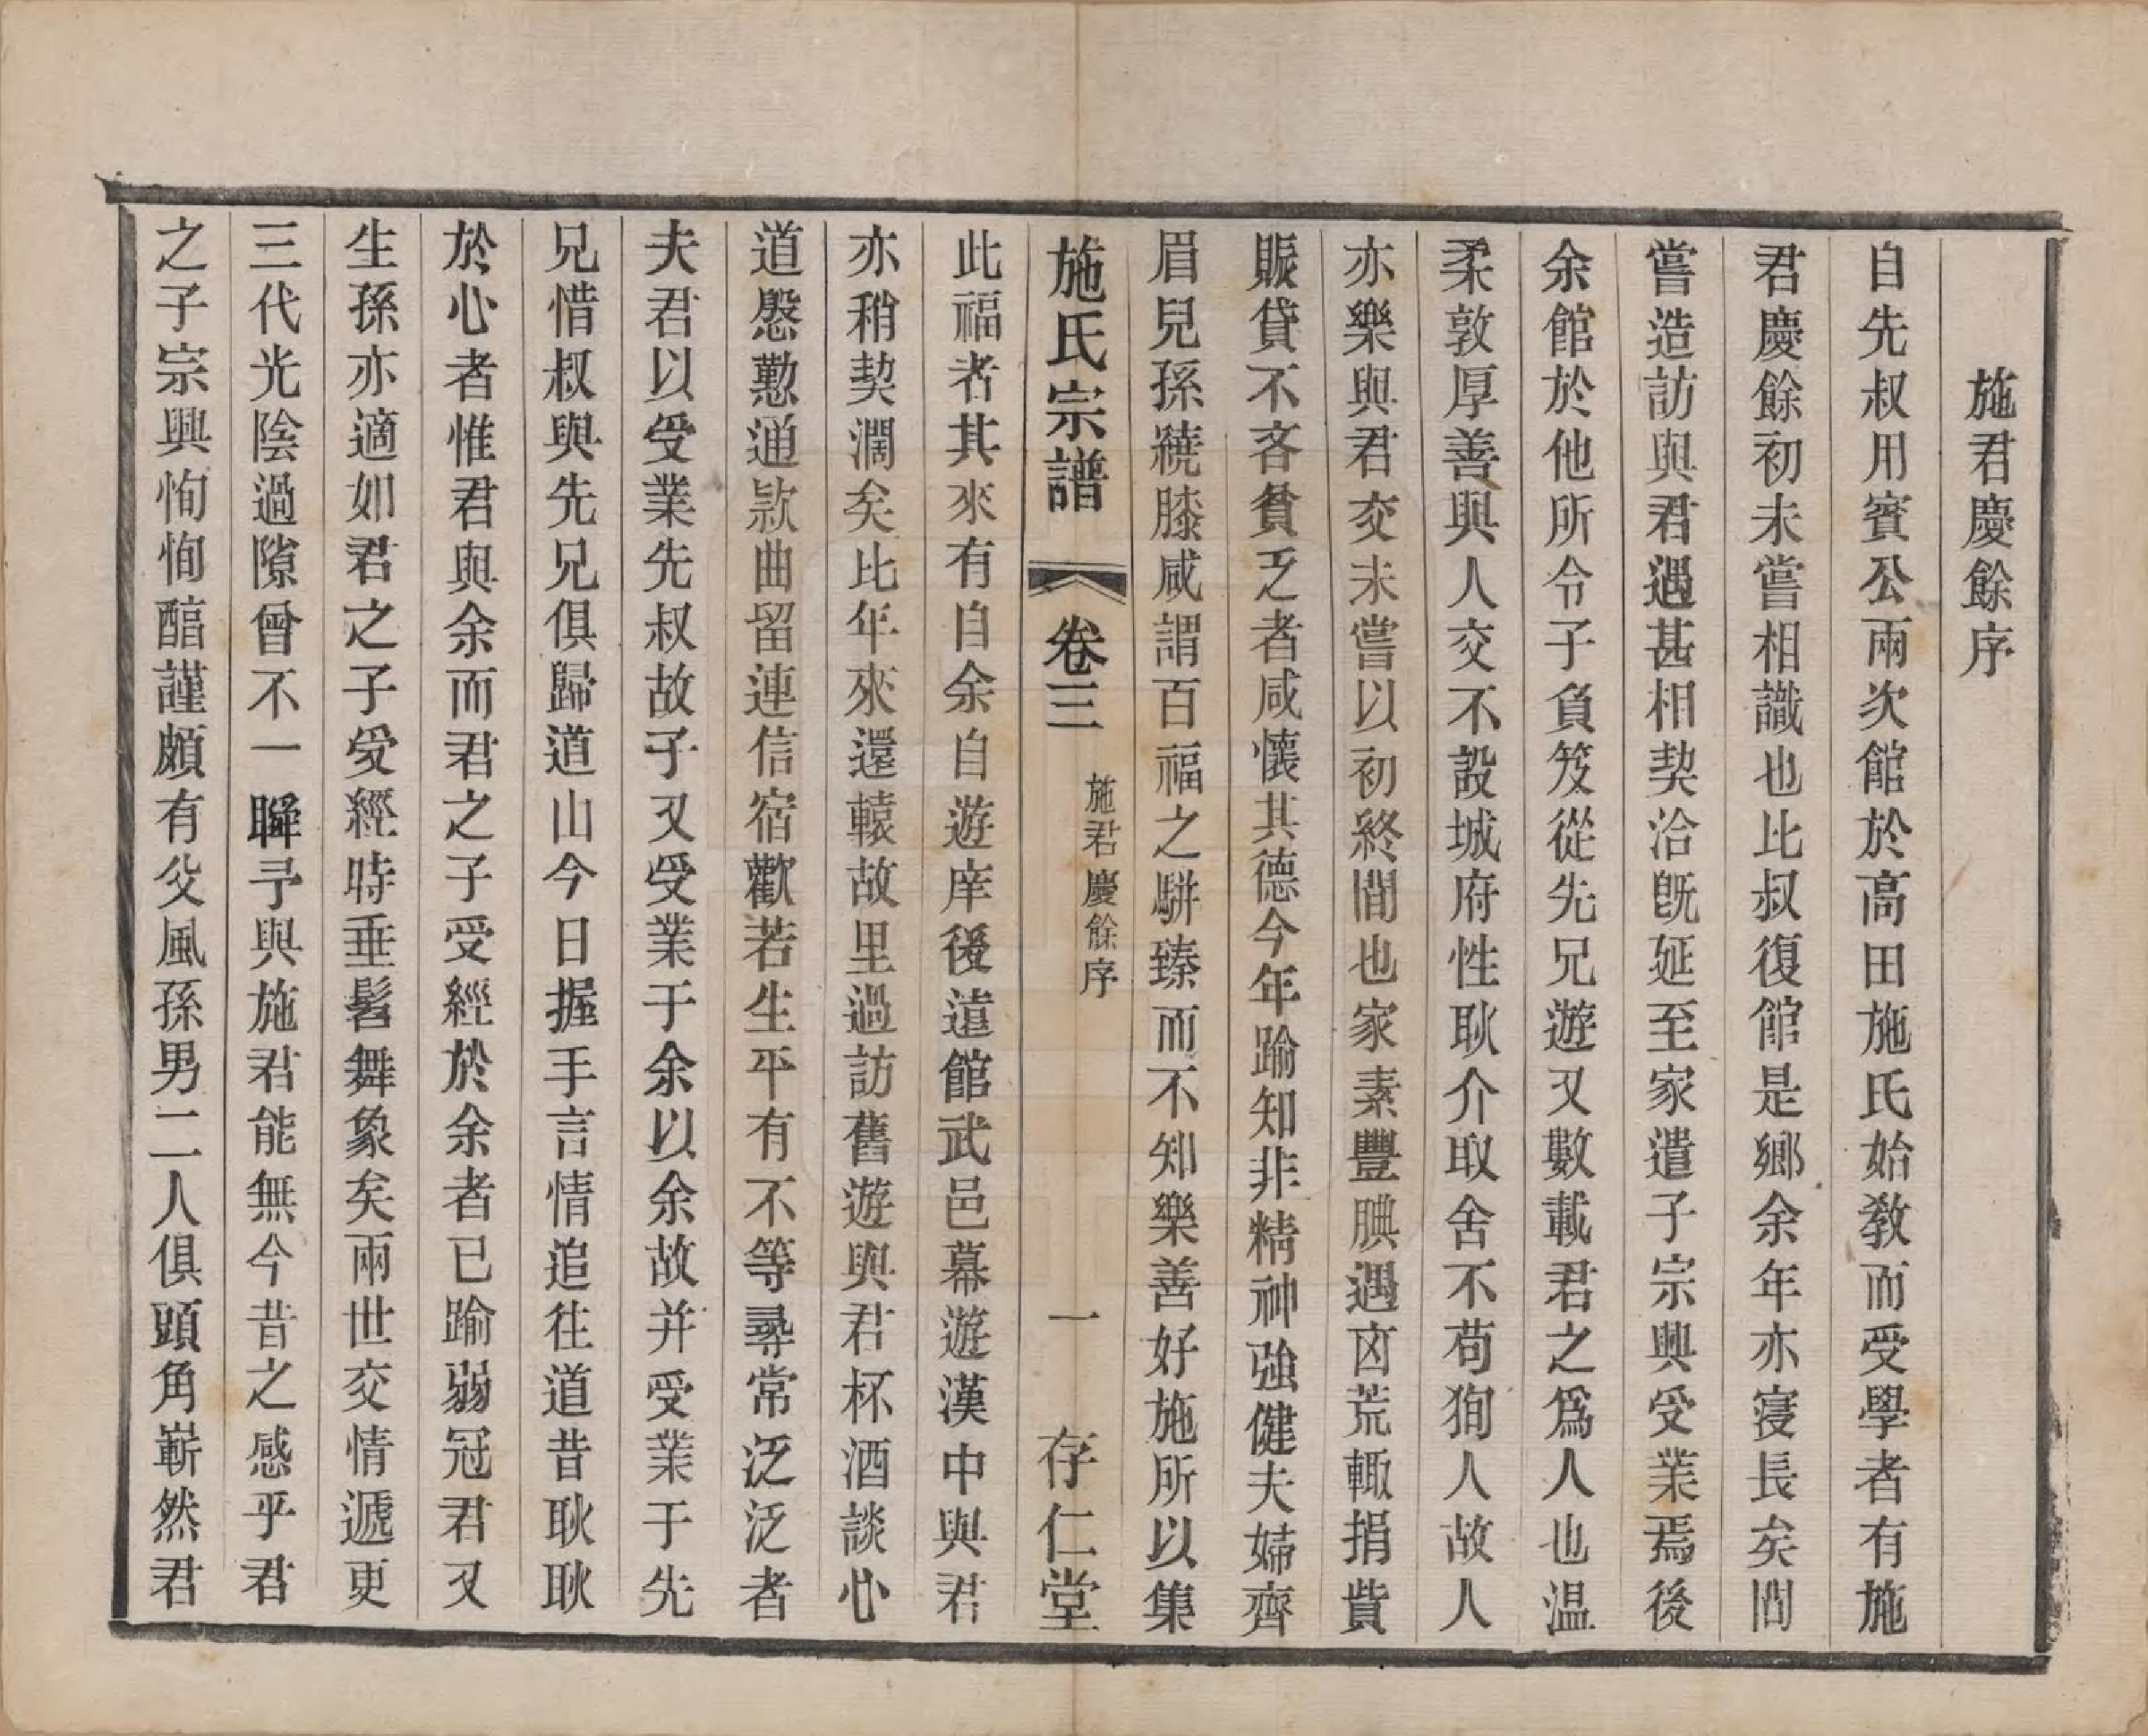 施君慶餘序
自先叔用賓公兩次館於高田施氏始教而受學者有施
君慶餘初未嘗相識也比叔復館是鄉余年亦寖長矣間
嘗造訪與君遇甚相契洽旣延至家遣子宗興受業焉後
余館於他所令子負笈從先兄遊又數載君之爲人也温
柔敦厚善與人交不設城府性耿介取舍不苟狥人故人
亦樂與君交未嘗以初終間也家素豐腆遇㐫荒輙捐貲
賑貸不吝貧乏者咸懷其德今年踰知非精神強健夫婦齊
眉兒孫繞膝咸謂百福之駢臻而不知樂善好施所以集
施氏宗譜
卷三
施君慶餘序
一
存仁堂
此福者其來有自余自遊庠後遠館武邑幕遊漢中與君
亦稍契濶矣比年來還轅故里過訪舊遊與君杯酒談心
道慇懃通欵曲留連信宿歡若生平有不等尋常泛泛者
夫君以受業先叔故子又受業于余以余故并受業于先
兄惜叔與先兄俱歸道山今日握手言情追往道昔耿耿
於心者惟君與余而君之子受經於余者已踰弱冠君又
生孫亦適如君之子受經時垂髫舞象矣兩世交情遞更
三代光陰過隙曾不一瞬予與施君能無今昔之感乎君
之子宗興恂恂醕謹頗有父風孫男二人俱頭角嶄然君